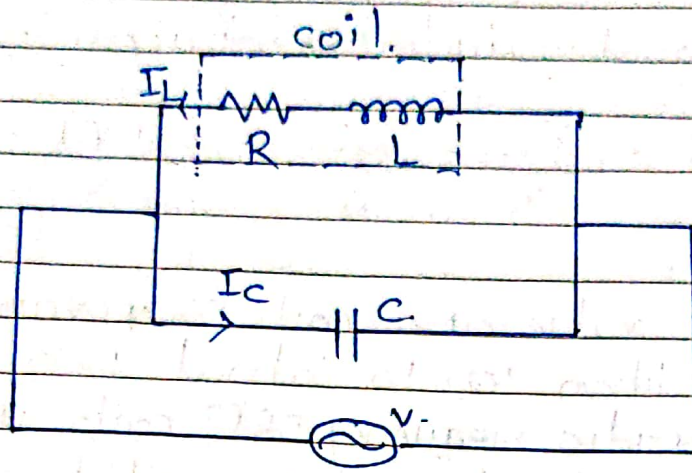 coil.
I_L
R L
I_C C
V.